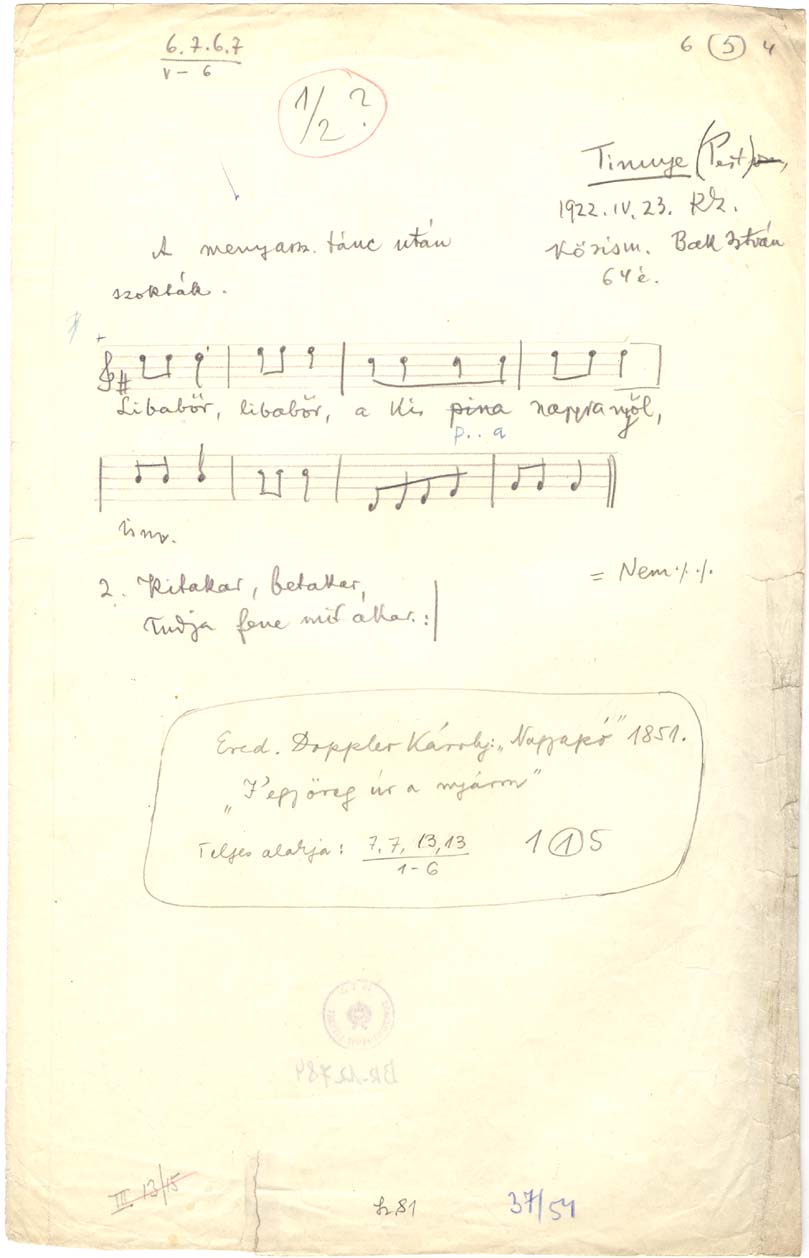 6.7.6.7
V – 6
6 (5) 4
1/2 ?
Tinnye (Pest)
1922. IV. 23. Kz.
Közism. Bak István
64 é.
A menyassz. tánc után
szokták.
Libabőr, libabőr, a kis pina nagyra nyől,
p.. a
ism.
2. Kitakar, betakar,
Tudja fene mit akar. :|
= Nem ·/. ·/.
Ered. Doppler Károly: „Nagyapó" 1851.
Teljes alakja: 7, 7, 13, 13
1 – 6
1 (1) 5
BR-12784
III. 13/15
Lz 81
37/54